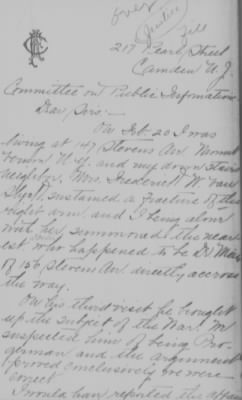 over
file
217 Pearl Street
Camden N. J.
Committee on Public Information
Dear Sirs:-
On Feb. 20 I was
living at 147 Stevens Ave. Mount
and my down stairs
neighbor, Mrs. Frederick W. Van
sustained a fracture of the
right arm, and I being alone
with her, summoned the near-
est, who happened to be Dr.
of 156 Stevens Ave. directly accross
the way.
On his third visit he brought
up the subject of the War. We
suspected him of being Pro-
german and the argument
proved conclusively we were
correct.
I would have reported the affair